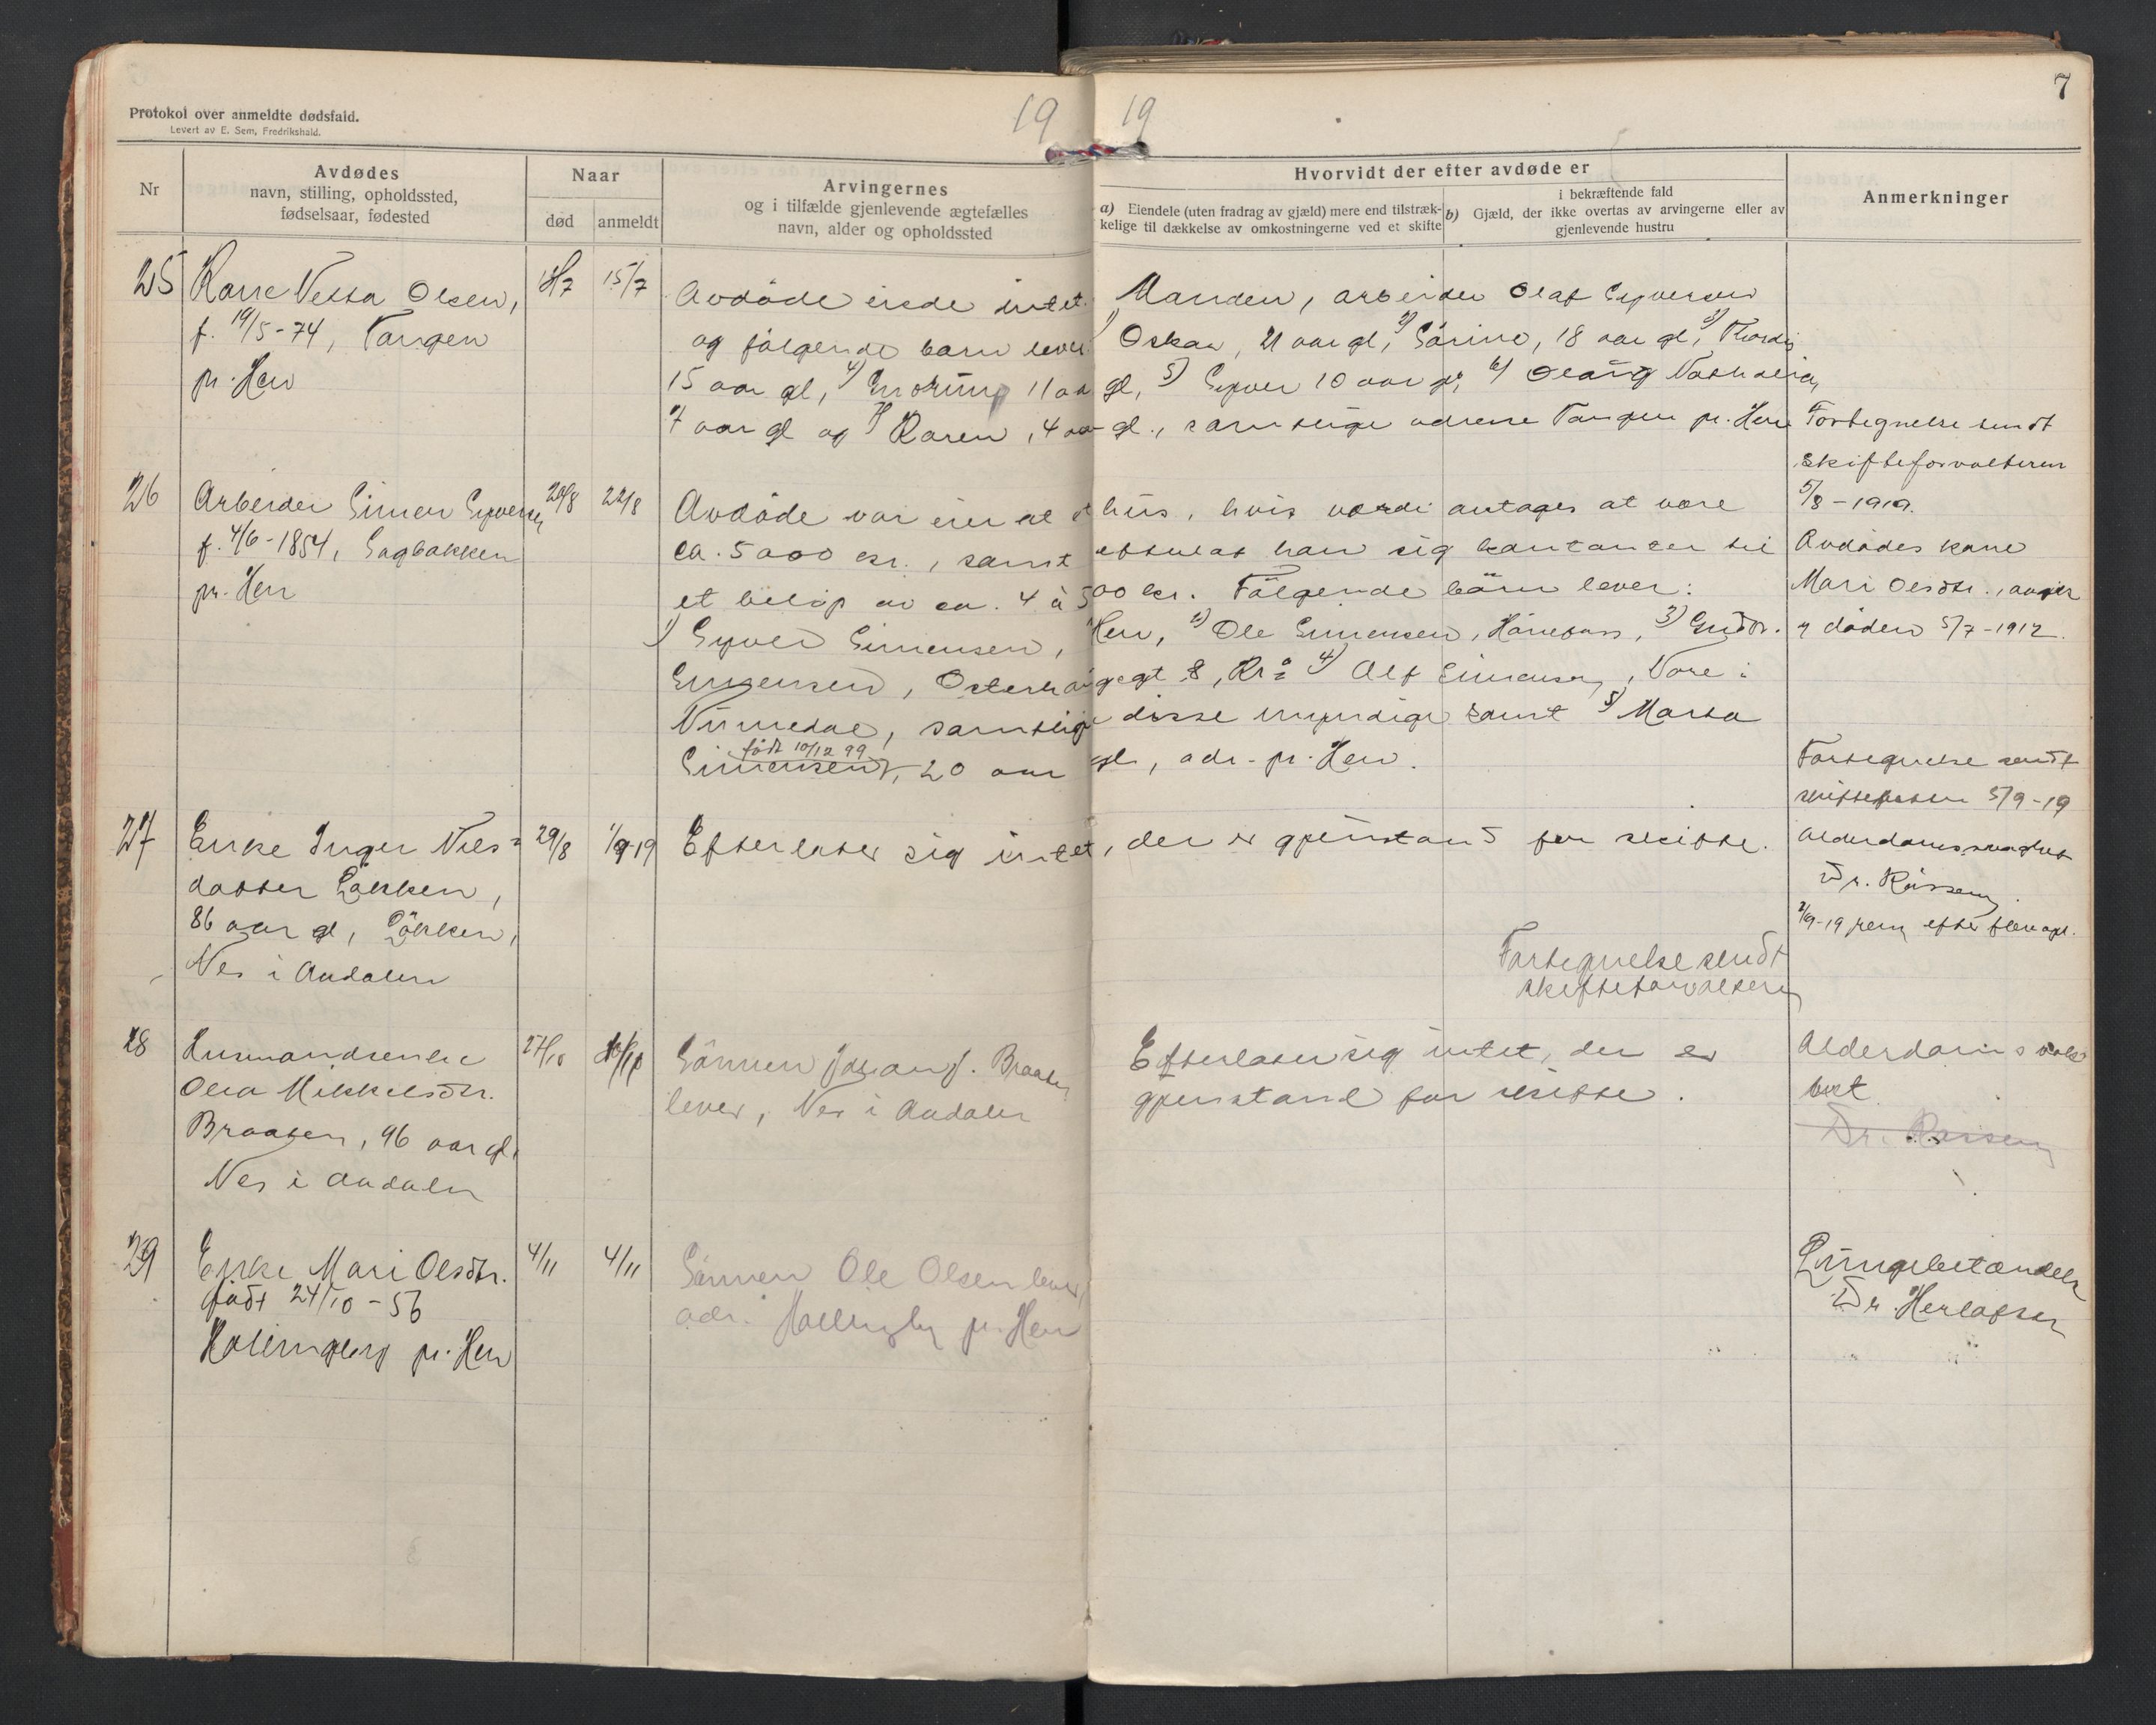 Protokol over anmeldte dødsfald.
Levert av E. Sem, Fredrikshald.
19 19
7
Nr
Avdødes
navn, stilling, opholdssted,
fødselsaar, fødested
Naar
død
anmeldt
Arvingernes
og i tilfælde gjenlevende ægtefælles
navn, alder og opholdssted
Hvorvidt der efter avdøde er
a) Eiendele (uten fradrag av gjæld) mere end tilstræk-
kelige til dækkelse av omkostningerne ved et skifte
i bekræftende fald
b) Gjæld, der ikke overtas av arvingerne eller av
gjenlevende hustru
Anmerkninger
25
Kone Olsen,
f. 19/5-74, Tangen
pr. Hen
15/7
Avdøde eiede intet. Manden, arbeider Olaf Syversen
og følgende barn lever: 1) Oskar, 21 aar gl, 2) 18 aar gl, 3) Thordis
15 aar gl, 4) 11 aar gl, 5) Syver 10 aar gl, 6) Olaug
7 aar gl og 7) Karen, 4 aar gl., samtlige adresse Tangen pr. Hen
Fortegnelse sendt
skifteforvalteren
5/8-1919.
26
Arbeider Simen Syversen,
f. 4/6-1854, Sagbakken
pr. Hen
20/8
22/8
Avdøde var eier af et hus, hvis værdi antages at være
ca. 5000 kr., samt efterlot han sig kontanter til
et beløp av ca. 4 à 500 kr. Følgende børn lever:
1) Syver Simensen, Hen, 2) Ole Simensen, Hønefoss, 3) Gudbr.
Simensen, gt 8, Kr.a 4) Alf Simensen, Nore i
Numedal, samtlige disse myndige samt 5) Marta
født 10/12 99
Simensen, 20 aar gl, adr. pr. Hen.
Avdødes kone
Mari Olsdtr., avgik
v døden 5/7-1912.
Fortegnelse sendt
5/9-19
27
Enke Inger Nils-
datter Løkken,
86 aar gl, Løkken,
Nes i Aadalen
29/8
1/9-19
Efterlater sig intet, der er gjenstand for skifte.
Alderdomssvaghet
Dr.
2/9-19
Fortegnelse sendt
skifteforvalteren
28
Husmandsenke
Olea Mikkelsdtr.
Braaten, 96 aar gl,
Nes i Aadalen
27/10
Sønnen Johan J. Braaten
lever, Nes i Aadalen
Efterlater sig intet, der er
gjenstand for skifte.
Dr.
29
Enke Mari Olsdtr.
født 24/10-56
Hallingby pr. Hen
4/11
4/11
Sønnen Ole Olsen lever,
adr. Hallingby pr. Hen
Lungebetændelse
Dr. Herlofsen